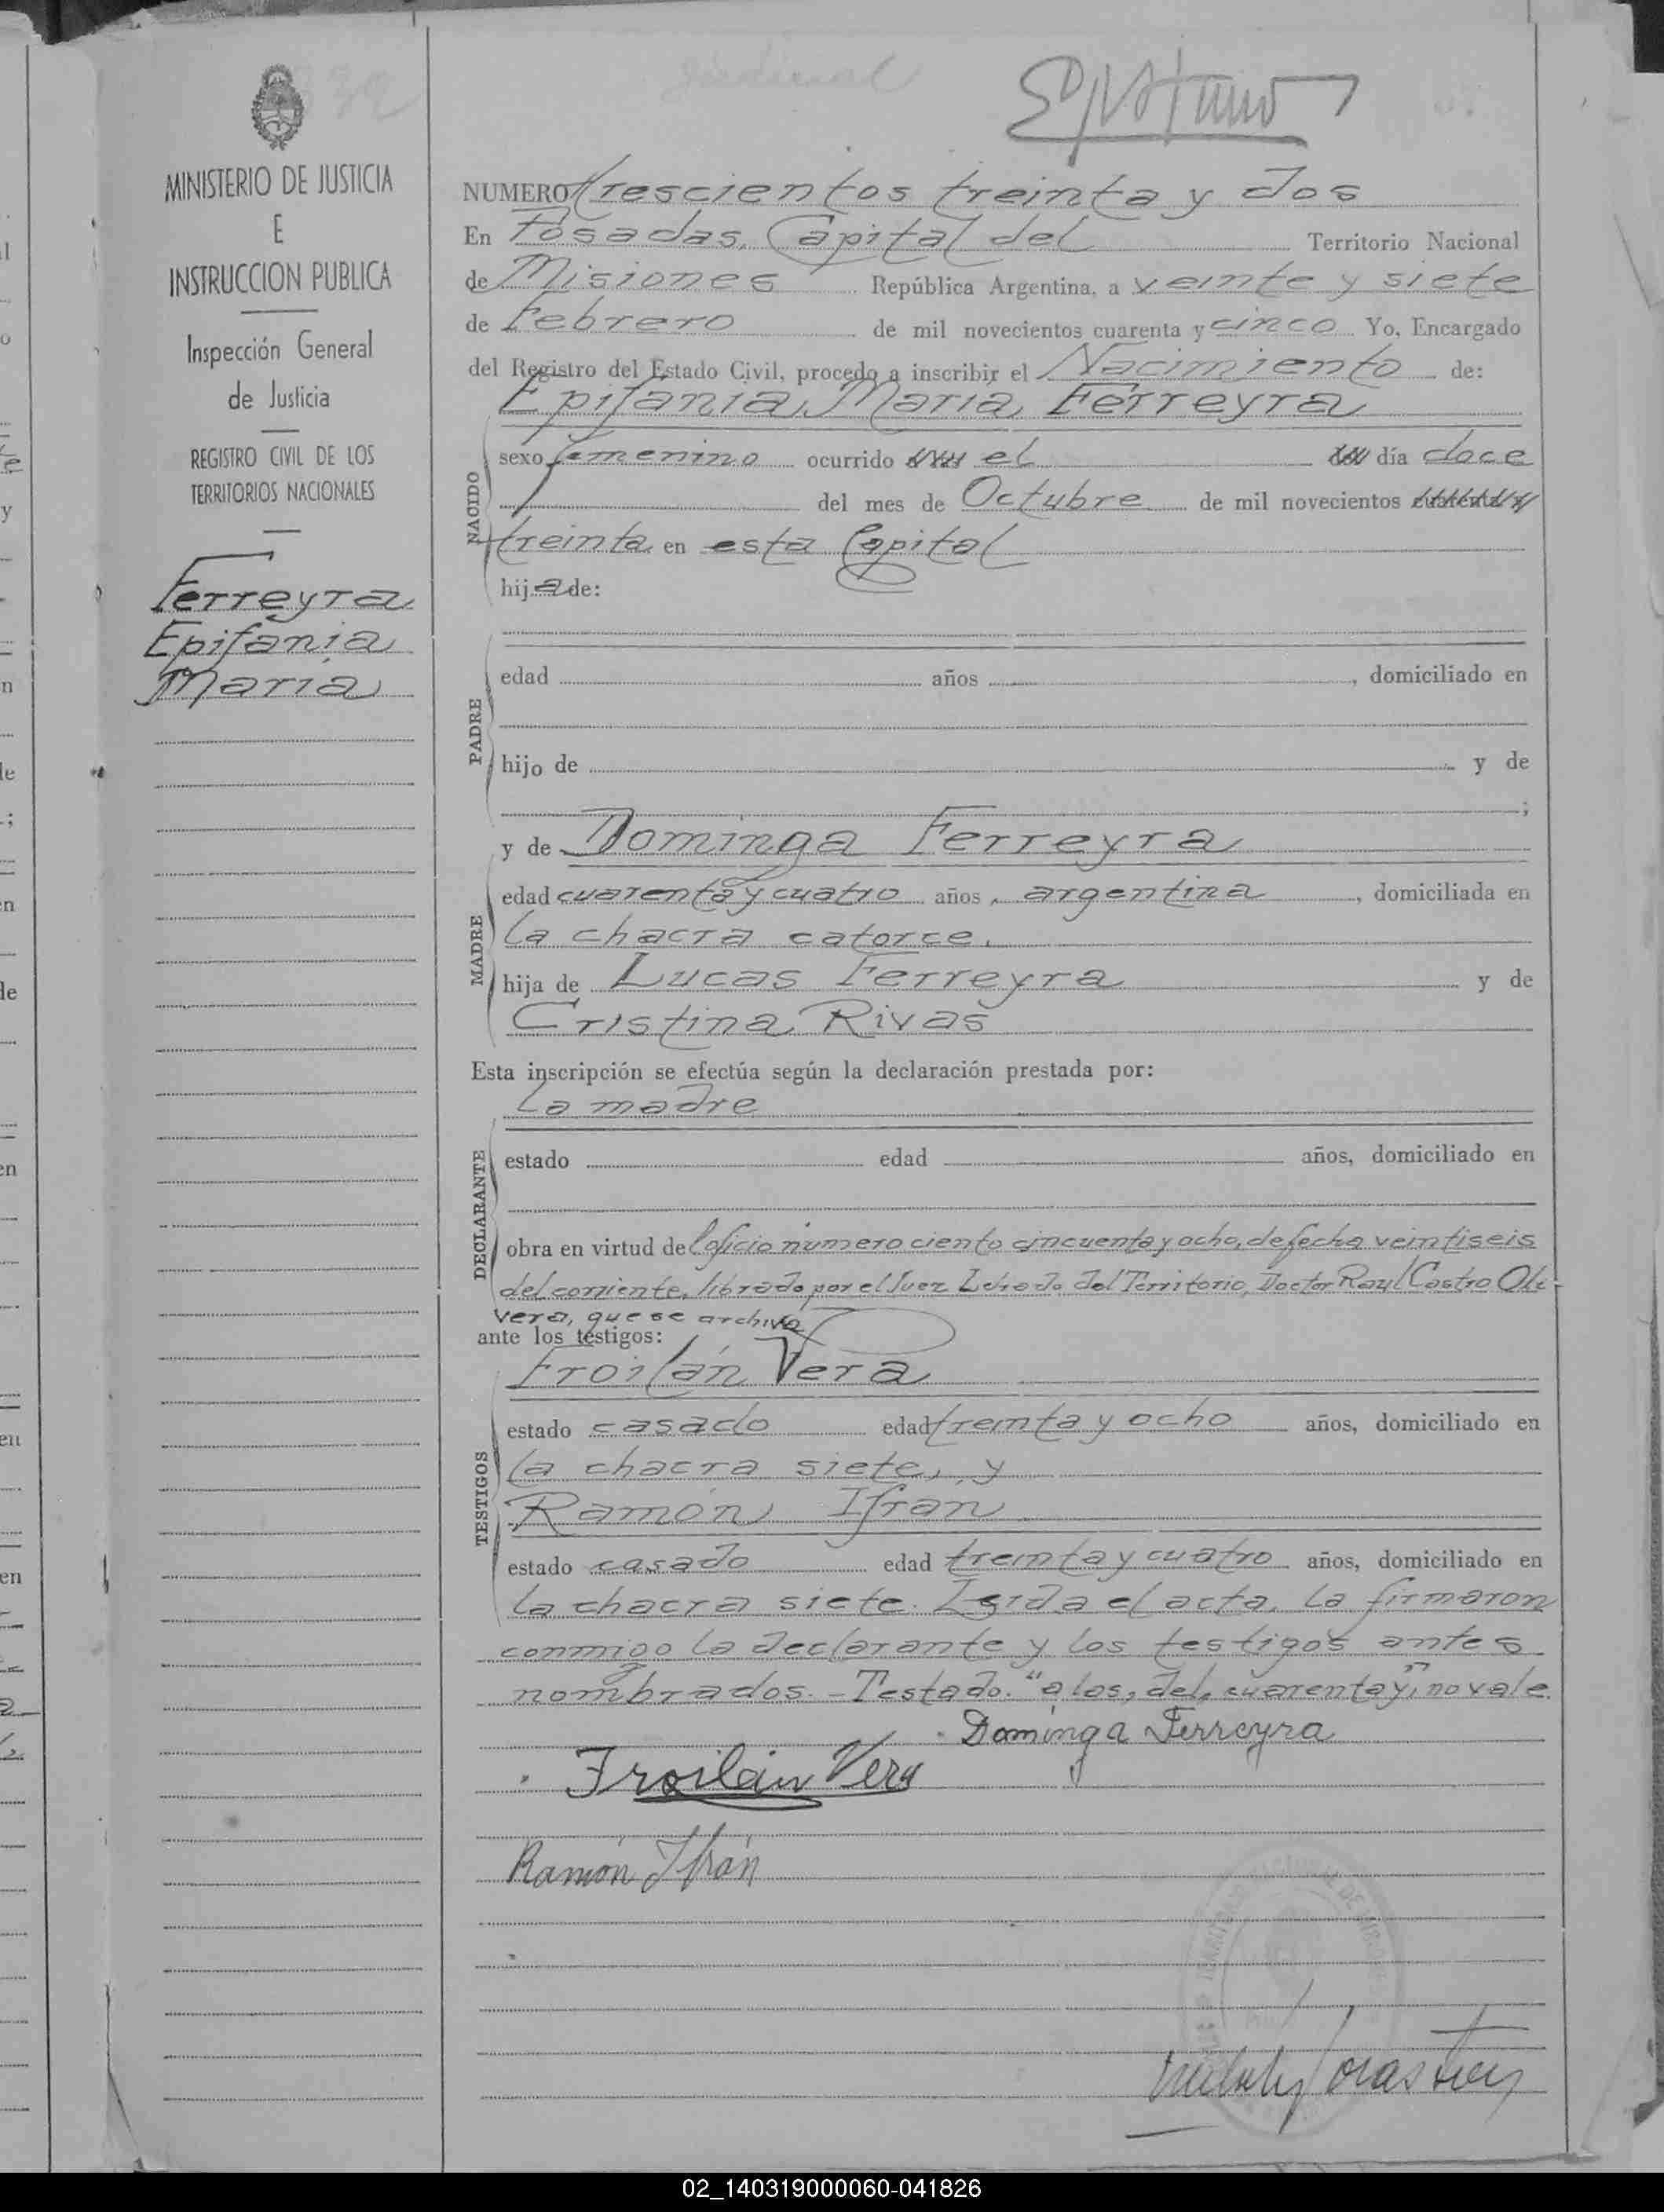 MINISTERIO DE JUSTICIA
E
INSTRUCCION PUBLICA
Inspección General
de Justicia
REGISTRO CIVIL DE LOS
TERRITORIOS NACIONALES
Ferreyra
Epifania
Maria
NUMERO trescientos treinta y dos
En Posadas, Capital del Territorio Nacional
de Misiones República Argentina, a veinte y siete
de Febrero de mil novecientos cuarenta y cinco Yo, Encargado
del Registro del Estado Civil, procedo a inscribir el Nacimiento de:
Epifania Maria Ferreyra
NACIDO
sexo femenino ocurrido el día doce
del mes de Octubre de mil novecientos cuarenta y
treinta en esta Capital
hija de:
PADRE
edad años , domiciliado en
hijo de y de
;
y de Dominga Ferreyra
MADRE
edad cuarenta y cuatro años, argentina, domiciliada en
la chacra catorce.
hija de Lucas Ferreyra y de
Cristina Rivas
Esta inscripción se efectúa según la declaración prestada por:
La madre
DECLARANTE
estado edad años, domiciliado en
obra en virtud del oficio número ciento cincuenta y ocho, de fecha veintiseis
del corriente, librado por el Juez Letrado del Territorio, Doctor Raul Castro Oli-
vera, que se archiva
ante los testigos:
Froilán Vera
TESTIGOS
estado casado edad treinta y ocho años, domiciliado en
la chacra siete, y
Ramón Ifran
estado casado edad treinta y cuatro años, domiciliado en
la chacra siete. Leida el acta, la firmaron
conmigo la declarante y los testigos antes
nombrados. - Testado. "a los, del, cuarenta y", no vale.
Dominga Ferreyra
Froilán Vera
Ramón Ifrán
02_140319000060-041826